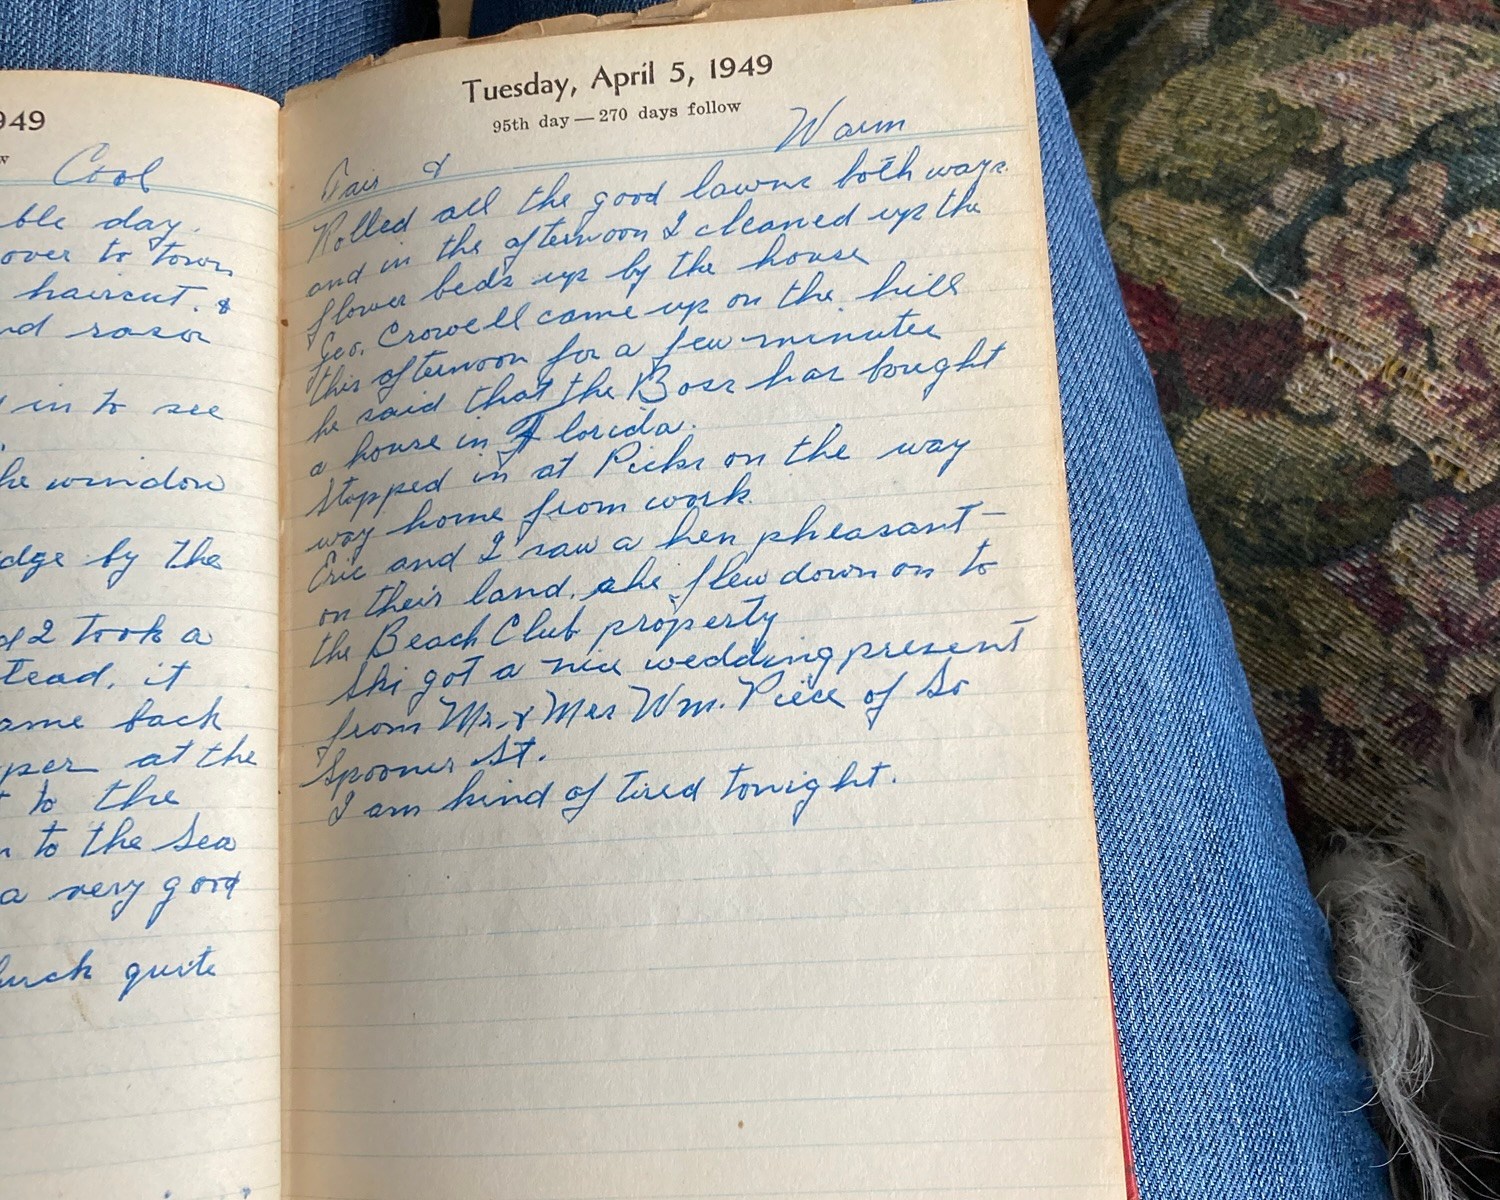 949
w
Cool
ble day.
over to town
haircut. &
nd rasor
in to see
he window
dge by the
d I took a
tead. it
ame back
per at the
to the
n to the Sea
a very good
luck quite
Tuesday, April 5, 1949
95th day — 270 days follow
Fair & Warm
Rolled all the good lawns both ways.
and in the afternoon I cleaned up the
flower beds up by the house
Geo. Crowell came up on the hill
this afternoon for a few minutes
he said that the Boss has bought
a house in Florida.
Stopped in at Picks on the way
way home from work.
Eric and I saw a hen pheasant—
on their land. she flew down on to
the Beach Club property
Ski got a nice wedding present
from Mr. & Mrs Wm. Piece of So
Spooner St.
I am kind of tired tonight.